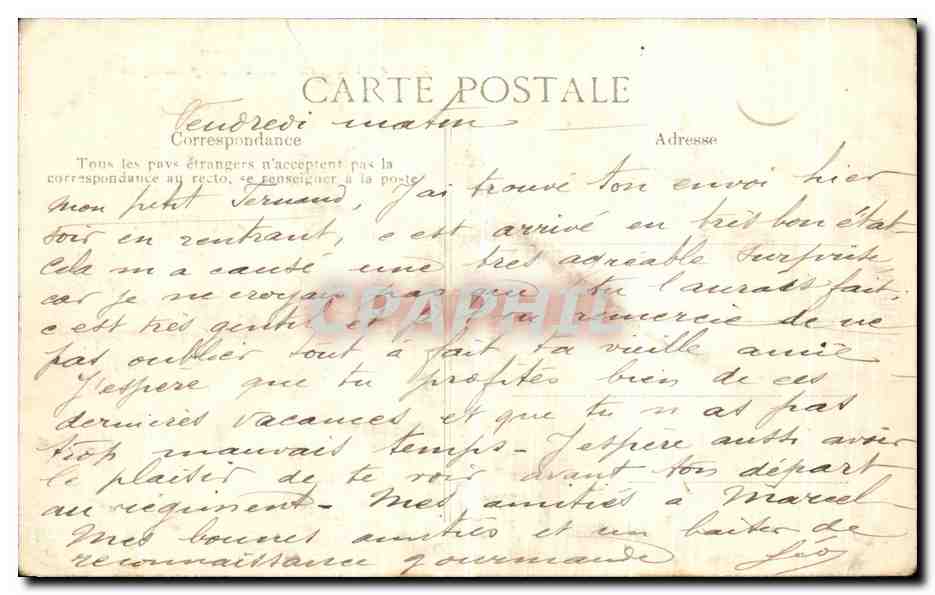 CARTE POSTALE
Vendredi matin
Correspondance
Adresse
Tous les pays étrangers n'acceptent pas la
correspondance au recto, se renseigner à la poste
Mon petit Fernand, J'ai trouvé ton envoi hier
soir en rentrant, c'est arrivé en très bon état -
Cela m'a causé une très agréable surprise
car je ne croyais pas que tu l'aurais fait,
c'est très gentil et je te remercie de ne
pas oublier tout à fait ta vieille amie
J'espère que tu profites bien de ces
dernières vacances et que tu n'as pas
trop mauvais temps - J'espère aussi avoir
le plaisir de te voir avant ton départ
au régiment - Mes amitiés à Marcel
Mes bonnes amitiés et un baiser de
reconnaissance gourmande
CPAPHIL